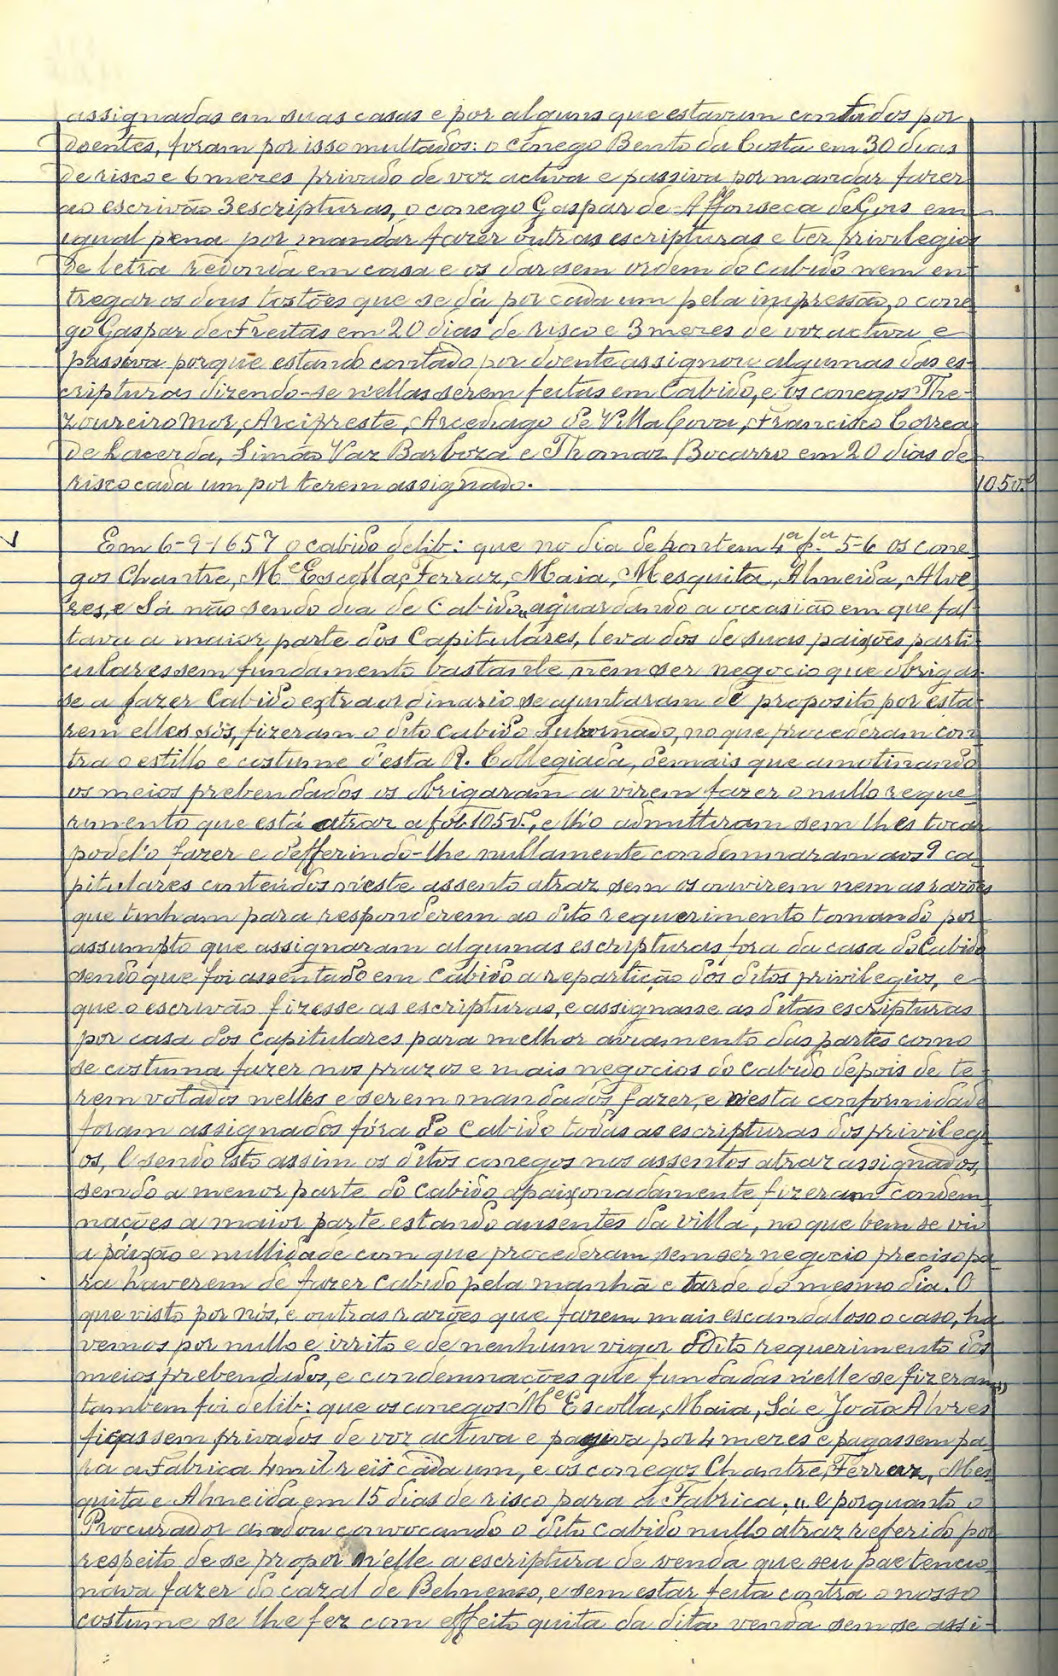 assignadas em suas casas e por alguns que estavam contados por
doentes, foram por isso multados: o conego Bento da Costa em 30 dias
de risco e 6 mezes privado de voz activa e passiva por mandar fazer
ao escrivão 3 escripturas, o conego Gaspar de Affonseca de Goes em
igual pena por mandar fazer outras escripturas e ter privilegios
de letra redonda em casa e os dar sem ordem do Cabido nem en-
tregar os dous tostões que se dá por cada um pela impressão, o cone-
go Gaspar de Freitas em 20 dias de risco e 3 mezes de voz activa e
passiva porque estando contado por doente assignou algumas das es-
cripturas dizendo-se n'ellas serem feitas em Cabido, e os conegos The-
zoureiro Mór, Arcipreste, Arcediago de Villa Cova, Francisco Correa
de Lacerda, Simão Vaz Barboza e Thomaz Bocarro em 20 dias de
risco cada um por terem assignado.
105 v.º
Em 6-9-1657 o cabido delib: que no dia de hontem 4ª fª 5-6 os cone-
gos Chantre, Mᵉ Escolla, Ferraz, Maia, Mesquita, Almeida, Alve-
res, e Sá não sendo dia de Cabido, aguardando a occasião em que fal-
tava a maior parte dos Capitulares, levados de suas paixões parti-
culares sem fundamento bastante nem ser negocio que obrigas-
se a fazer Cabido extraordinario se ajuntaram de proposito por esta-
rem elles sós, fizeram o dito cabido subornado, no que procederam con-
tra o estillo e costume d'esta R. Collegiada, demais que amotinando
os meios prebendados os obrigaram a virem fazer o nullo reque-
rimento que está atraz a fol. 105 vº, e lh'o admittiram sem lhes tocar
podel'o fazer e defferindo-lhe nullamente condemnaram aos 9 ca-
pitulares conteúdos n'este assento atraz sem os ouvirem nem as razões
que tinham para responderem ao dito requerimento tomando por
assumpto que assignaram algumas escripturas fora da casa do Cabido
sendo que foi assentado em Cabido a repartição dos ditos privilegios, e
que o escrivão fizesse as escripturas, e assignasse as ditas escripturas
por casa dos Capitulares para melhor aviamento das partes como
se costuma fazer nos prazos e mais negocios do Cabido depois de te-
rem votados nelles e serem mandados fazer, e n'esta conformidade
foram assignados fóra do Cabido todas as escripturas dos privilegi-
os, e sendo isto assim os ditos conegos nos assentos atraz assignados,
sendo a menor parte do Cabido apaixonadamente fizeram condem-
nações a maior parte estando ausentes da villa, no que bem se viu
a paixão e nullidade com que procederam sem ser negocio preciso pa-
ra haverem de fazer Cabido pela manhã e tarde do mesmo dia. O
que visto por nós, e outras razões que fazem mais escandaloso o caso, ha-
vemos por nullo e irrito e de nenhum vigor o dito requerimento dos
meios prebendados, e condemnações que fundadas n'elle se fizeram"
tambem foi delib: que os conegos Mᵉ Escolla, Maia, Sá e João Alvres
ficassem privados de voz activa e passiva por 4 mezes e pagassem pa-
ra a Fabrica 4 mil reis cada um, e os conegos Chantre, Ferraz, Mes-
quita e Almeida em 15 dias de risco para a Fabrica. „ e porquanto o
Procurador andou convocando o dito cabido nullo atraz referido por
respeito de se propor n'elle a escriptura de venda que seu pae tencio-
nava fazer do cazal de, e sem estar feita contra o nosso
costume se lhe fez com effeito quita da dita venda sem se assi-